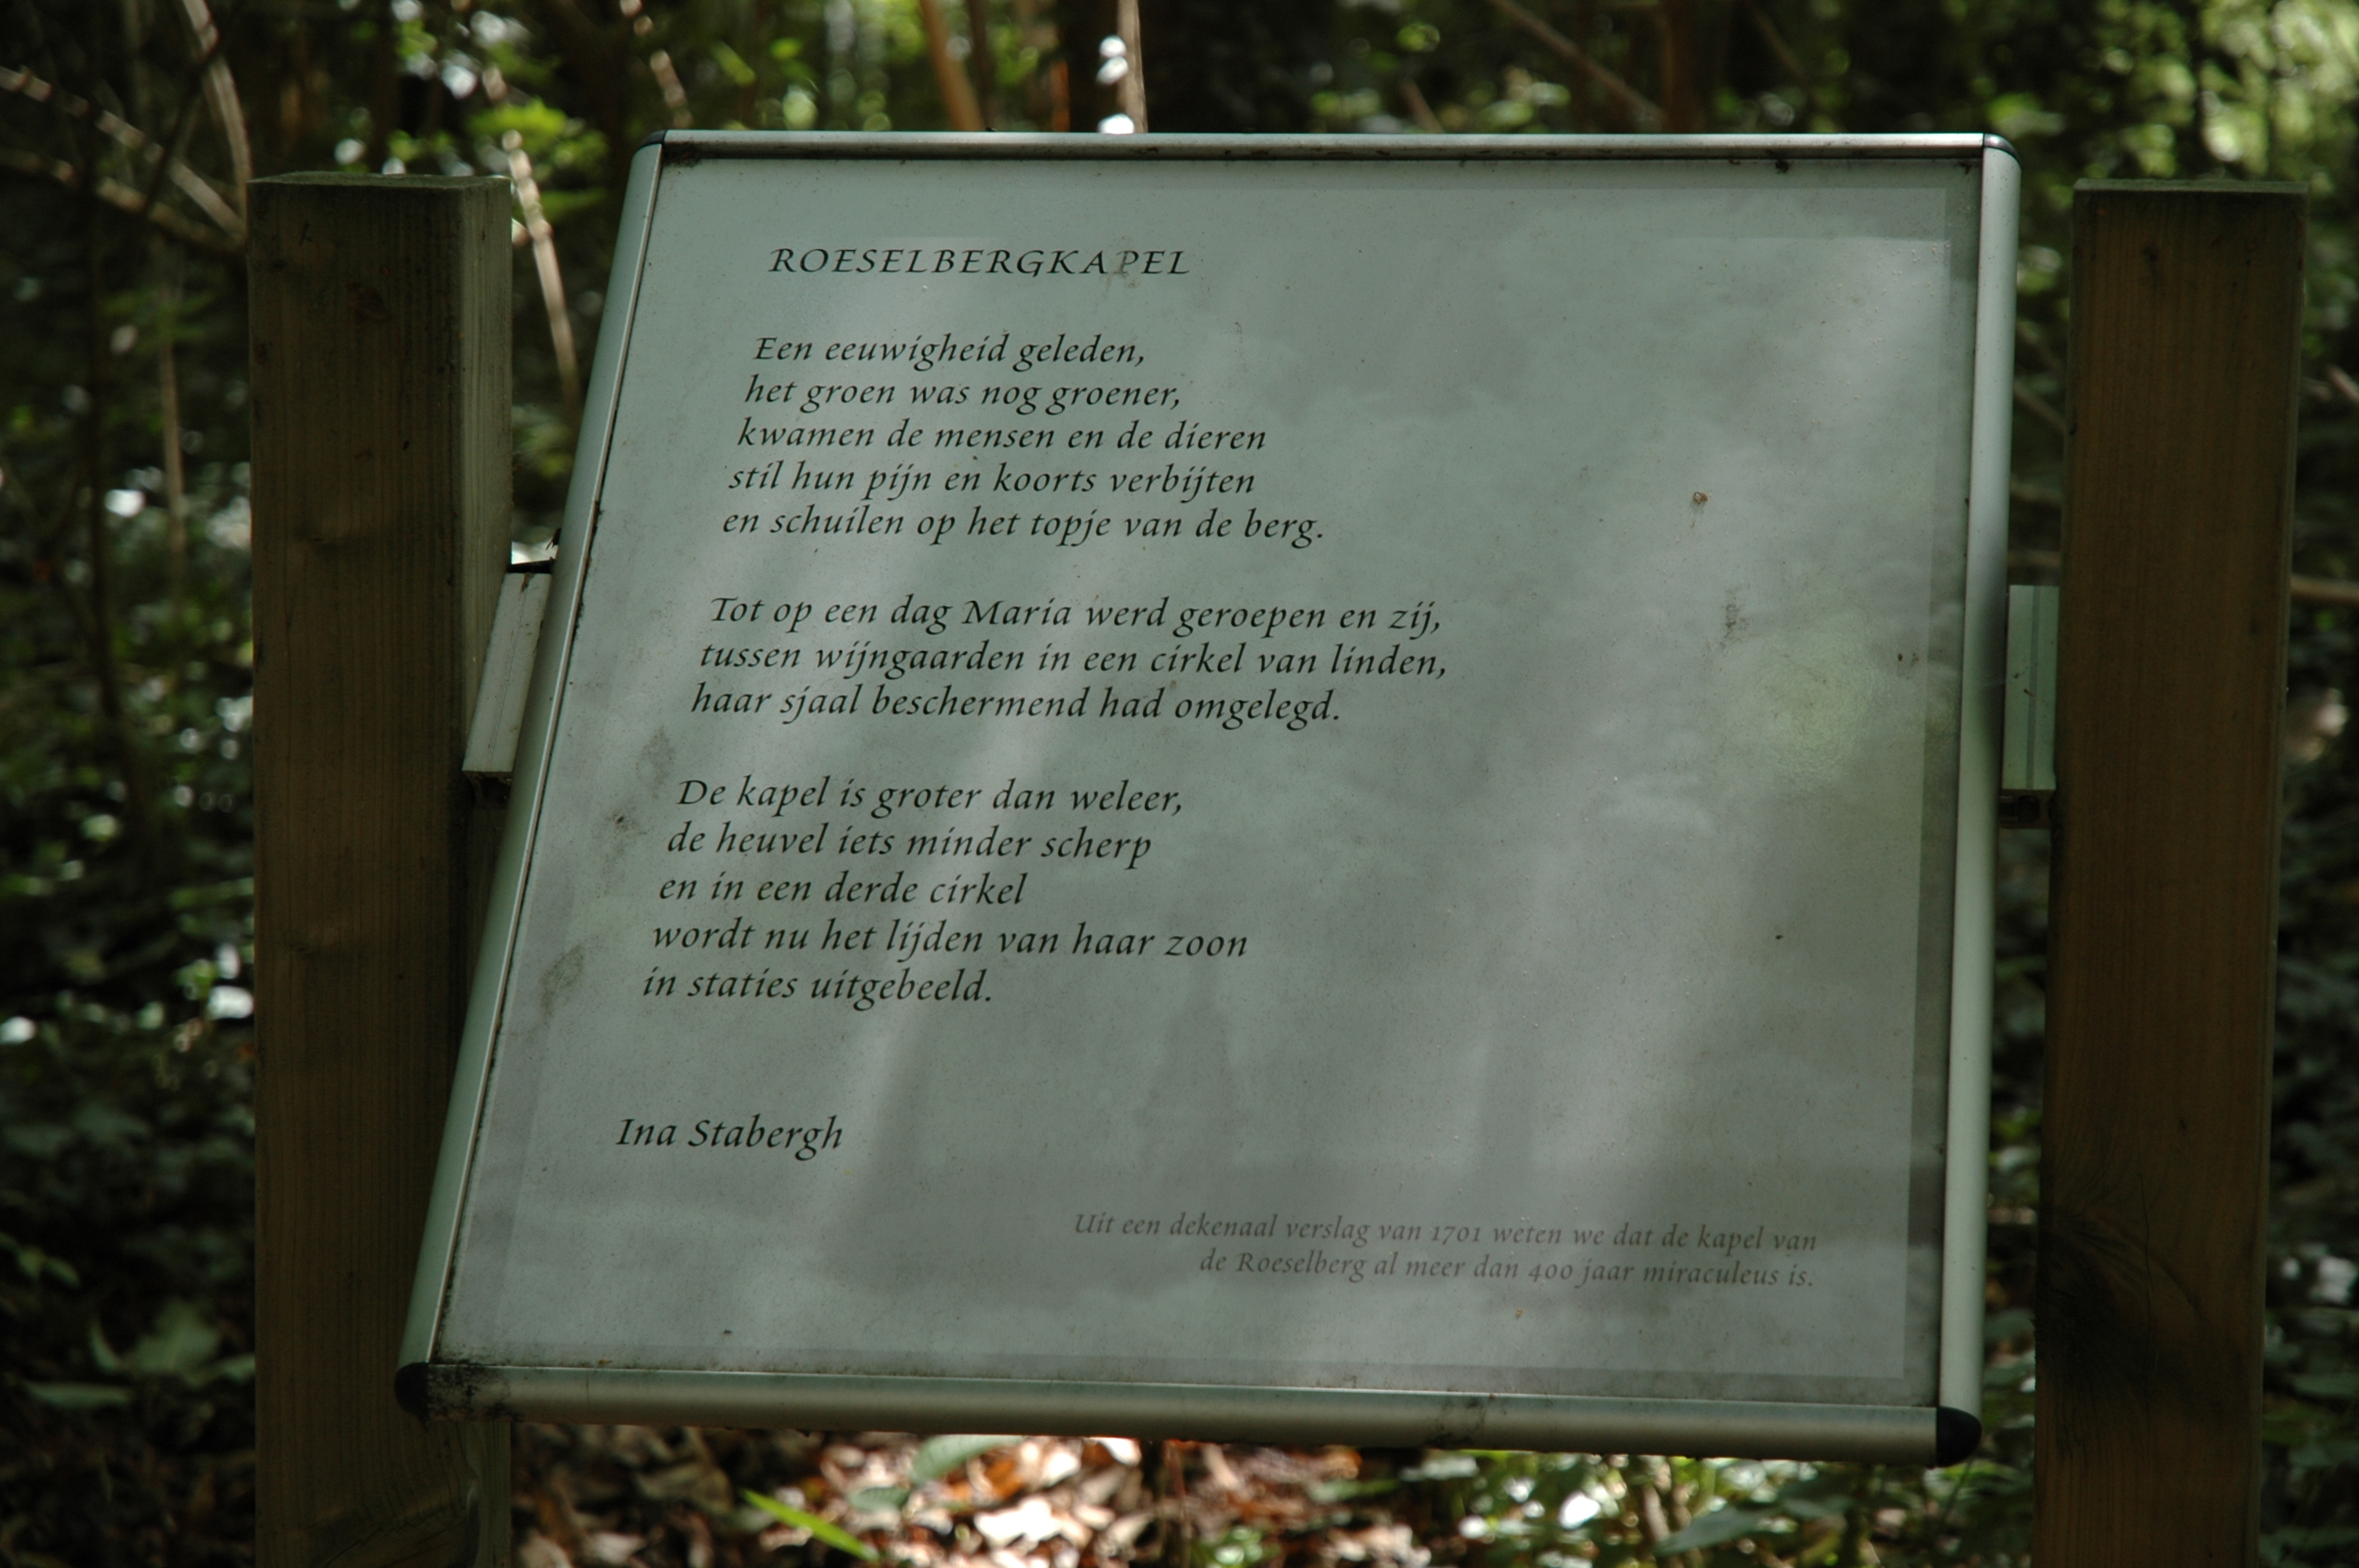 ROESELBERGKAPEL
Een eeuwigheid geleden,
het groen was nog groener,
kwamen de mensen en de dieren
stil hun pijn en koorts verbijten
en schuilen op het topje van de berg.
Tot op een dag Maria werd geroepen en zij,
tussen wijngaarden in een cirkel van linden,
haar sjaal beschermend had omgelegd.
De kapel is groter dan weleer,
de heuvel iets minder scherp
en in een derde cirkel
wordt nu het lijden van haar zoon
in staties uitgebeeld.
Ina Stabergh
Uit een dekenaal verslag van 1701 weten we dat de kapel van
de Roeselberg al meer dan 400 jaar miraculeus is.